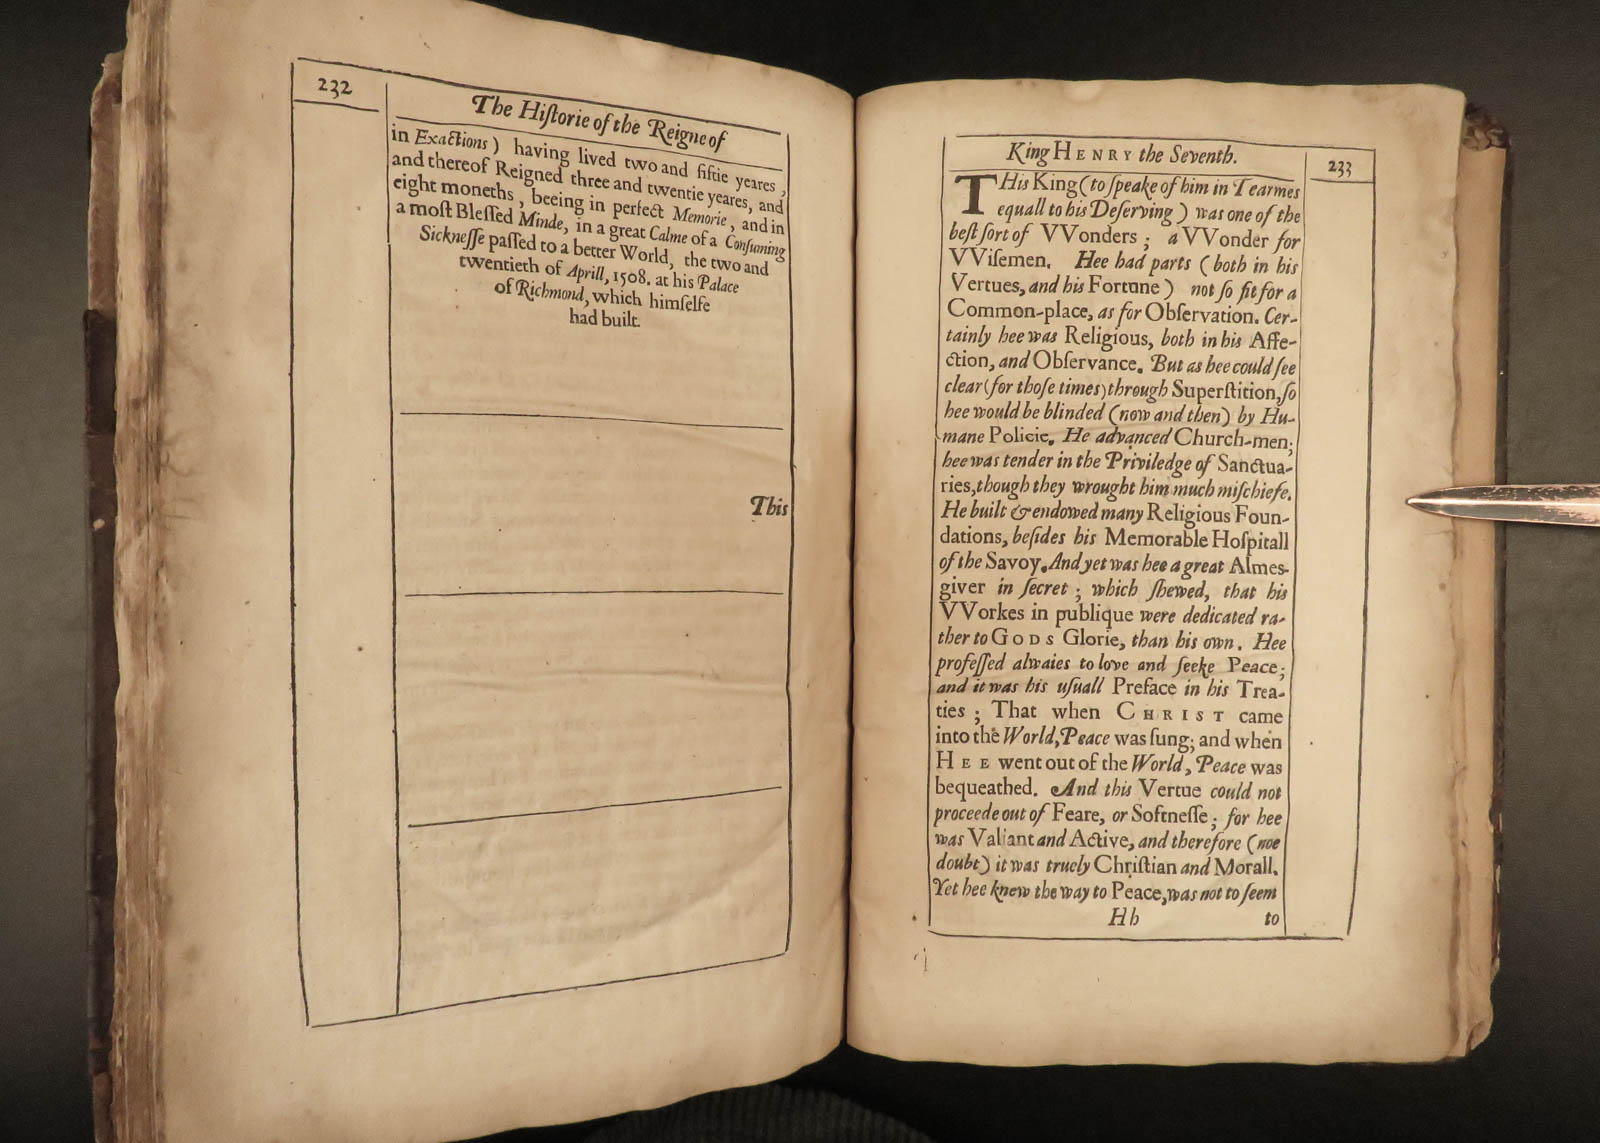 232
The Hiſtorie of the Reigne of
in Exactions) having lived two and fiftie yeares,
and thereof Reigned three and twentie yeares, and
eight moneths, beeing in perfect Memorie, and in
a moſt Bleſſed Minde, in a great Calme of a Conſuming
Sickneſſe paſſed to a better World, the two and
twentieth of Aprill, 1508. at his Palace
of Richmond, which himſelfe
had built.
This
King HENRY the Seventh.
233
THis King (to ſpeake of him in Tearmes
equall to his Deſerving) was one of the
beſt ſort of VVonders; a VVonder for
VViſemen. Hee had parts (both in his
Vertues, and his Fortune) not ſo fit for a
Common-place, as for Obſervation. Cer-
tainly hee was Religious, both in his Affe-
ction, and Obſervance. But as hee could ſee
clear (for thoſe times) through Superſtition, ſo
hee would be blinded (now and then) by Hu-
mane Policie. He advanced Church-men;
hee was tender in the Priviledge of Sanctua-
ries, though they wrought him much miſchiefe.
He built & endowed many Religious Foun-
dations, beſides his Memorable Hoſpitall
of the Savoy. And yet was hee a great Almes-
giver in ſecret; which ſhewed, that his
VVorkes in publique were dedicated ra-
ther to GODS Glorie, than his own. Hee
profeſſed alwaies to love and ſeeke Peace;
and it was his uſuall Preface in his Trea-
ties; That when CHRIST came
into the World, Peace was ſung; and when
HEE went out of the World, Peace was
bequeathed. And this Vertue could not
proceede out of Feare, or Softneſſe; for hee
was Valiant and Active, and therefore (noe
doubt) it was truely Chriſtian and Morall.
Yet hee knew the way to Peace, was not to ſeem
Hh
to